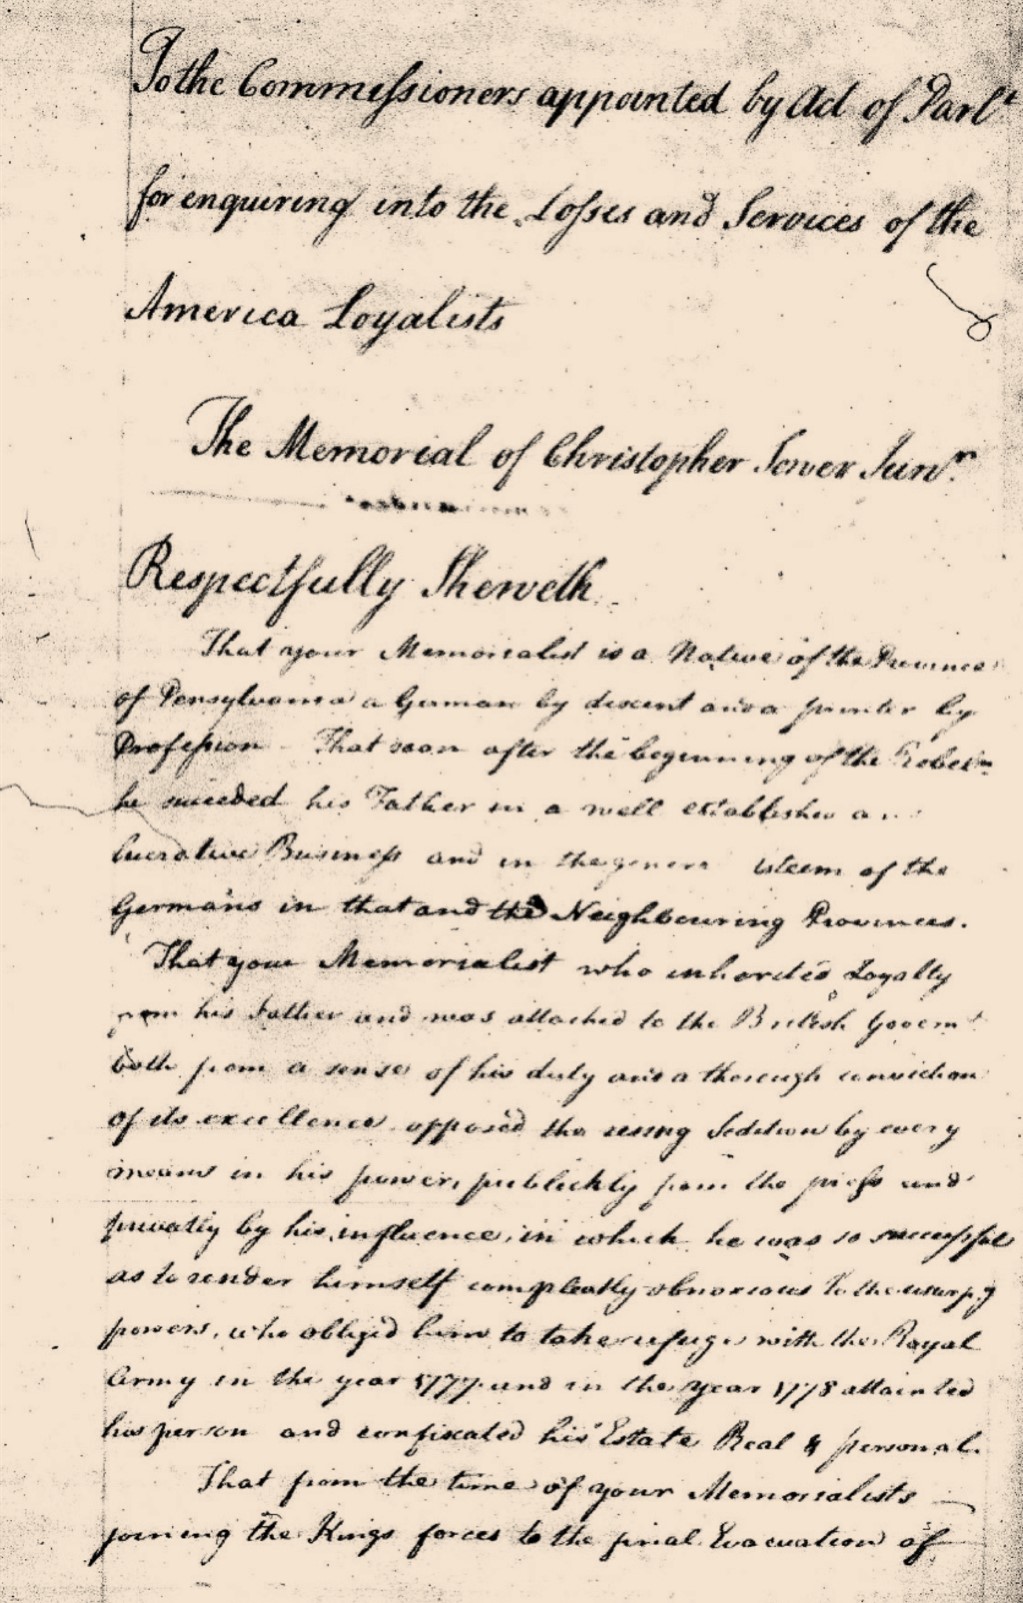 To the Commissioners appointed by Act of Parlt
for enquiring into the Losses and Services of the
America Loyalists
The Memorial of Christopher Sower Junr.
Respectfully Sheweth
That your Memorialist is a Native of the Province
of Pensylvania a German by descent and a printer by
Profession That soon after the beginning of the
he succeeded his Father in a well established
lucrative Business and in the esteem of the
Germans in that and the Neighbouring Provinces.
That your Memorialist who inherited Loyalty
from his Father and was attached to the British Governt
both from a sense of his duty and a thorough conviction
of its excellence opposed the rising Sedition by every
means in his power, publickly from the press and
privatly by his influence, in which he was so successful
as to render himself compleatly obnoxious to the usurpg
powers, who obliged him to take refuge with the Royal
Army in the year 1777 and in the year 1778 attainted
his person and confixated his Estate Real & personal.
That from the time of your Memorialists
joining the Kings forces to the final Evacuation of